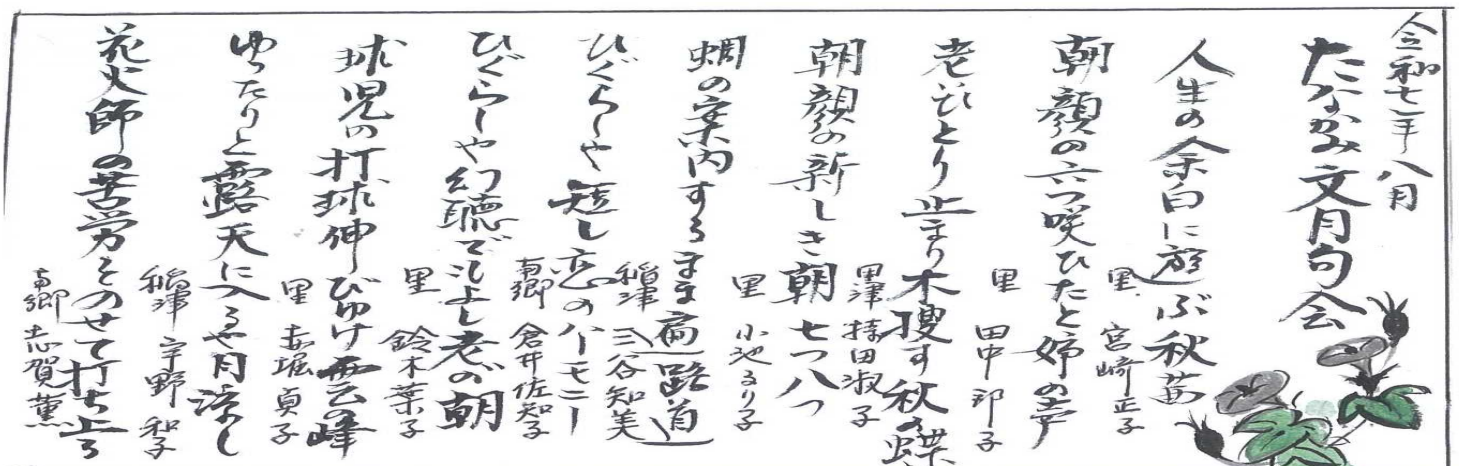 令和七年八月
たなかみ文月句会
人生の余白に遊ぶ秋茜
里 宮崎正子
朝顔の六つ咲ひたと姉の声
里 田中郁子
老ひとり止まり木捜す秋の蝶
里津 持田淑子
朝顔の新しき朝七つ八つ
里 小池るり子
蜩の案内するまま遍路道
稲津 三谷知美
ひぐらしや短し恋のハーモニー
南郷 倉井佐知子
ひぐらしや幻聴でもよし老が朝
里 鈴木葉子
球児の打球伸びゆけ雲の峰
里 赤堀貞子
ゆったりと露天に入るや月涼し
稲津 宇野和子
花火師の苦労をのせて打ち上る
南郷 志賀薫